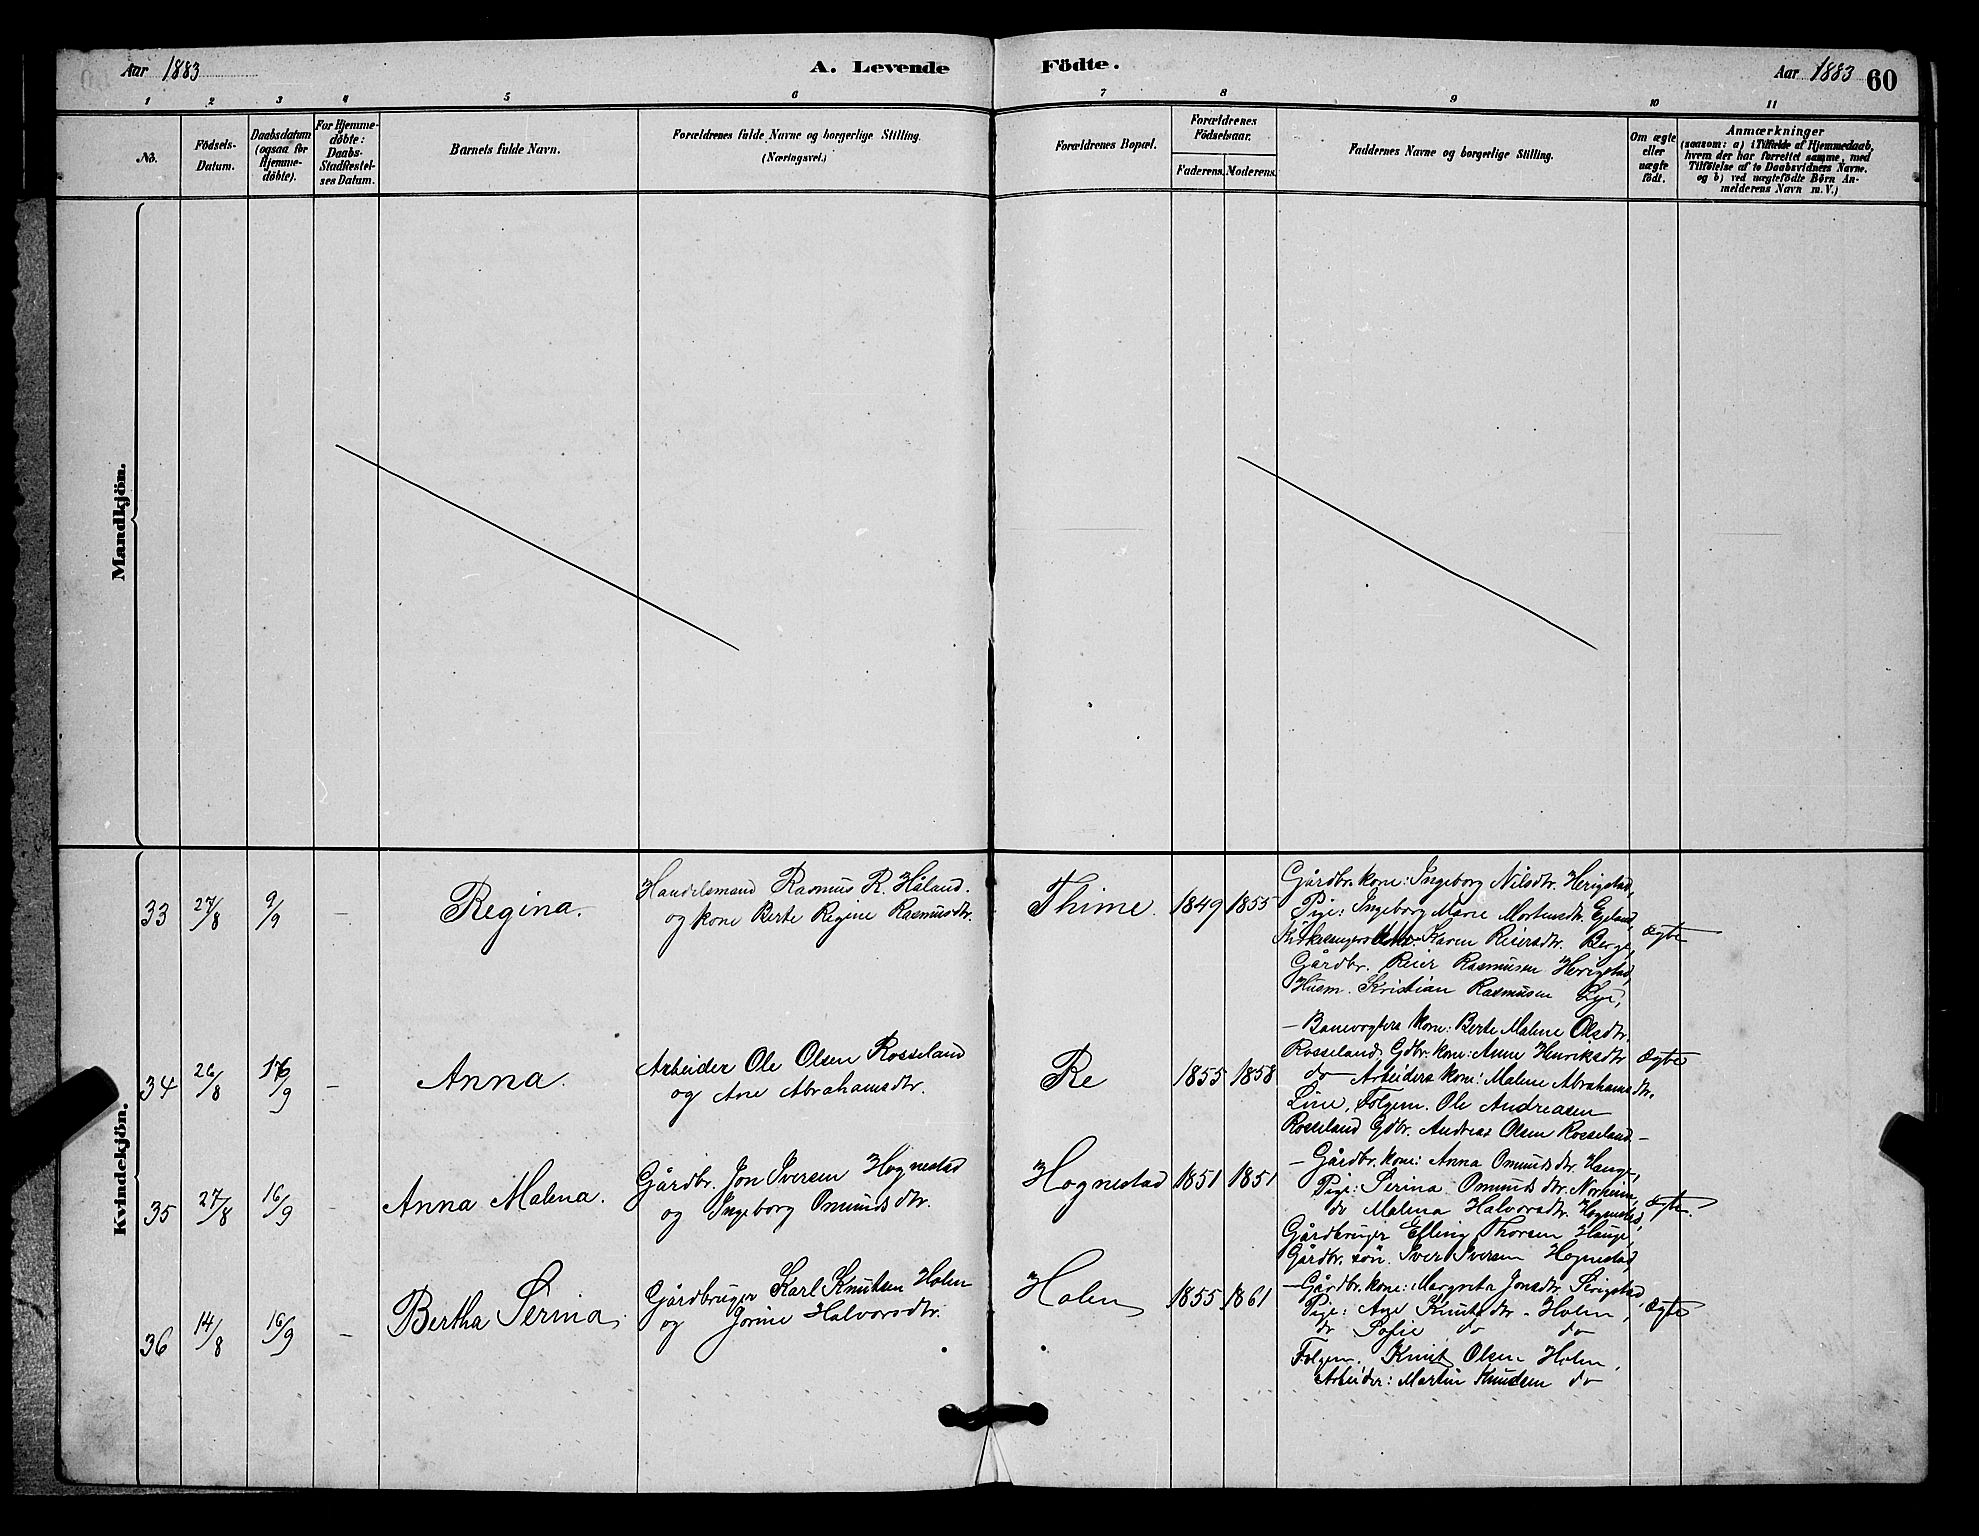 Aar 1883
A. Levende Födte.
Aar 1883 60
1 2 3 4 5 6 7 8 9 10 11
No.
Födsels-
Datum.
Daabsdatum
(ogsaa for
Hjemme-
döbte).
For Hjemme-
döbte:
Daabs-
Stadfæstel-
ses Datum.
Barnets fulde Navn.
Forældrenes fulde Navne og borgerlige Stilling.
(Næringsvei.)
Forældrenes Bopæl.
Forældrenes
Födselsaar.
Faderens. Moderens.
Faddernes Navne og borgerlige Stilling.
Om ægte
eller
uægte
födt.
Anmærkninger
(saasom: a) i Tilfælde af Hjemmedaab,
hvem der har forrettet samme, med
Tilföielse af to Daabsvidners Navne.
og b) ved uægtefödte Börn An-
melderens Navn m. V.)
Mandkjön.
Kvindekjön.
33 27/8 9/9 — Regina.
Handelsmand Rasmus R. Håland.
og kone Berte Regine Rasmusdtr.
Thime. 1849 1855
Gårdbr. kone: Ingeborg Nilsdtr. Herigstad,
Pige: Ingeborg Marie Mortensdtr. Egeland,
Karen Reiersdtr. Berge,
Gårdbr. Reier Rasmusen Herigstad,
Husm. Kristian Rasmusen Lye,
Ægte
34 26/8 16/9 — Anna.
Arbeider Ole Olsen Rosseland
og Ane Abrahamsdtr.
Re 1855 1858
— Banevogters kone: Berte Malene Olsdtr.
Rosseland, Gdbr. kone: Anne Henriksdtr
do — Arbeiders kone: Malene Abrahamsdtr.
Line, Folgem. Ole Andreasen
Rosseland Gdbr. Andreas Olsen Rosseland. —
Ægte
35 27/8 16/9 Anna Malena.
Gårdbr. Jon Iversen Hognestad
og Ingeborg Omundsdtr.
Hognestad 1851 1851
— Gårdbr. kone: Anna Omundsdtr. Hauge,
Pige: Serina Omundsdtr. Norheim,
do Malena Halvorsdtr. Hognestad,
Gårdbruger Efling Thorsen Hauge,
Gårdbr. sön Iver Iversen Hognestad,
Ægte.
36 14/8 16/9 — Bertha Serina.
Gårdbruger Karl Knutsen Holen
og Jorine Halvorsdtr.
Holen 1855 1861
— Gårdbr. kone: Margreta Jonsdtr. Serigstad,
Pige: Ane Knutsdtr. Holen,
do Sofie do do
Folgem. Knut Olsen Holen,
Arbeider: Martin Knudsen do
Ægte